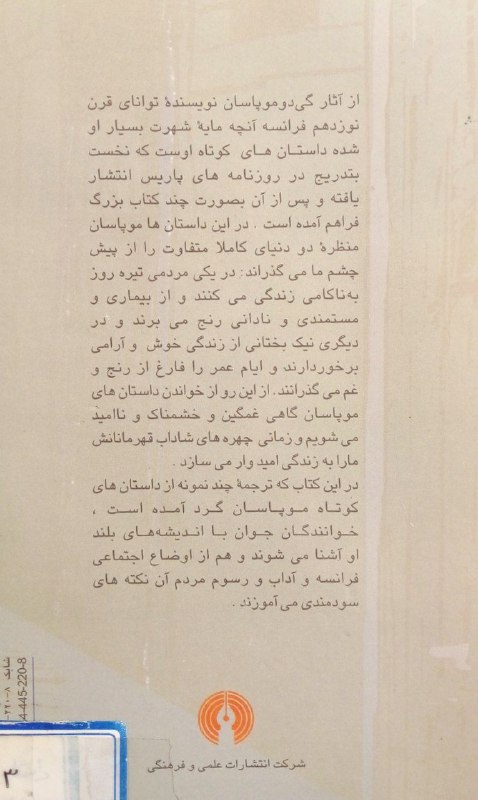 از آثار گی‌دوموپاسان نویسندهٔ توانای قرن
نوزدهم فرانسه آنچه مایهٔ شهرت بسیار او
شده داستان های کوتاه اوست که نخست
بتدریج در روزنامه های پاریس انتشار
یافته و پس از آن بصورت چند کتاب بزرگ
فراهم آمده است . در این داستان ها موپاسان
منظرهٔ دو دنیای کاملا متفاوت را از پیش
چشم ما می گذراند: در یکی مردمی تیره روز
به‌ناکامی زندگی می کنند و از بیماری و
مستمندی و نادانی رنج می برند و در
دیگری نیک بختانی از زندگی خوش و آرامی
برخوردارند و ایام عمر را فارغ از رنج و
غم می گذرانند. از این رو از خواندن داستان های
موپاسان گاهی غمگین و خشمناک و ناامید
می شویم و زمانی چهره های شاداب قهرمانانش
مارا به زندگی امید وار می سازد .
در این کتاب که ترجمهٔ چند نمونه از داستان های
کوتاه موپاسان گرد آمده است ،
خوانندگان جوان با اندیشه‌های بلند
او آشنا می شوند و هم از اوضاع اجتماعی
فرانسه و آداب و رسوم مردم آن نکته های
سودمندی می آموزند .
شابک ۸-۲۲۰-
4-445-220-8
شرکت انتشارات علمی و فرهنگی
۳